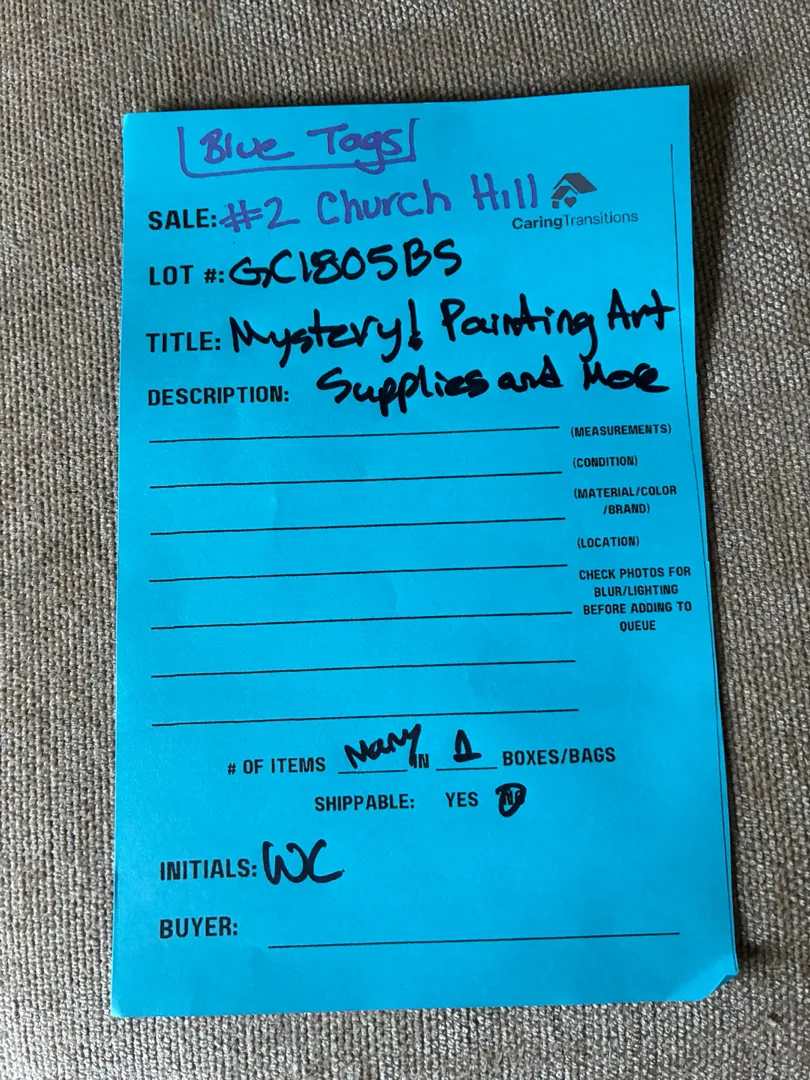 Blue Tags
SALE: #2 Church Hill
CaringTransitions
LOT #: GC1805BS
TITLE: Mystery! Painting Art
DESCRIPTION: Supplies and More
(MEASUREMENTS)
(CONDITION)
(MATERIAL/COLOR
/BRAND)
(LOCATION)
CHECK PHOTOS FOR
BLUR/LIGHTING
BEFORE ADDING TO
QUEUE
# OF ITEMS Many IN 1 BOXES/BAGS
SHIPPABLE: YES NO
INITIALS: WC
BUYER: